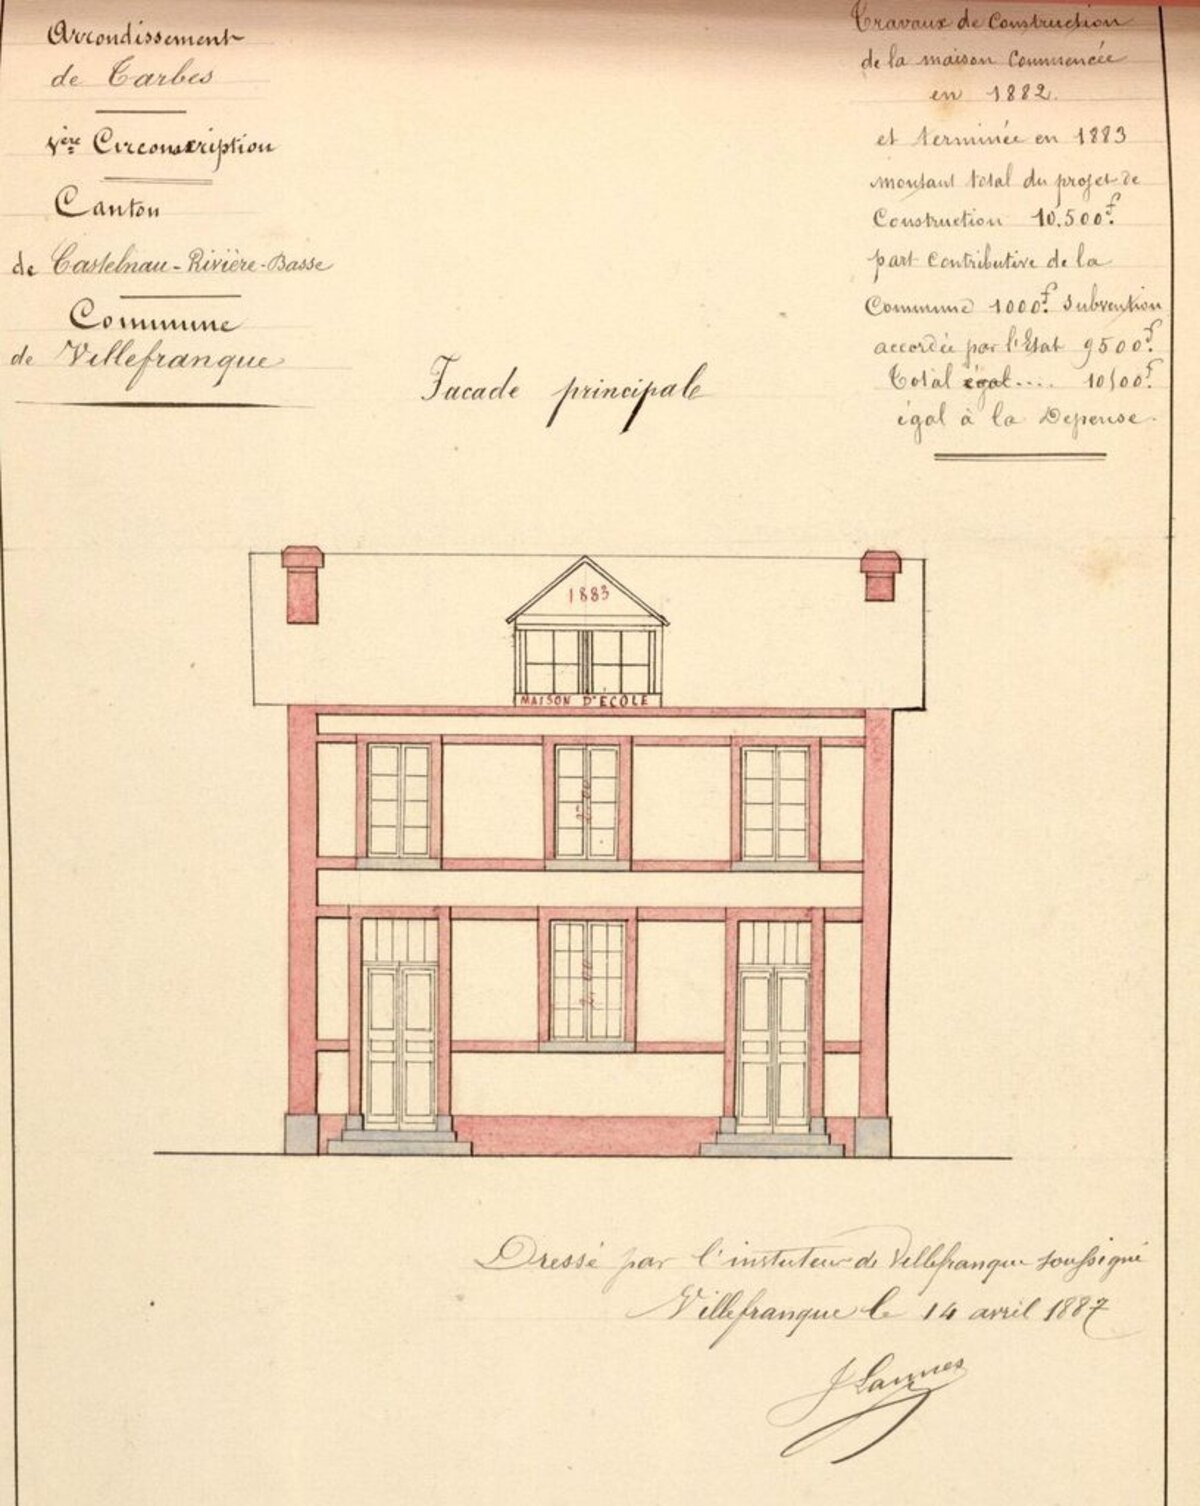 Arrondissement
de Tarbes
1ère Circonscription
Canton
de Castelnau-Rivière-Basse
Commune
de Villefranque
Travaux de Construction
de la maison Commencée
en 1882.
et terminée en 1883
montant total du projet de
Construction 10.500f.
part contributive de la
Commune 1000f. Subvention
accordée par l'Etat 9500f.
Total égal.... 10500f.
égal à la Depense.
Facade principale
1883
MAISON D'ÉCOLE
Dressé par l'instuteur de Villefranque soussigné
Villefranque le 14 avril 1887
J Lannes